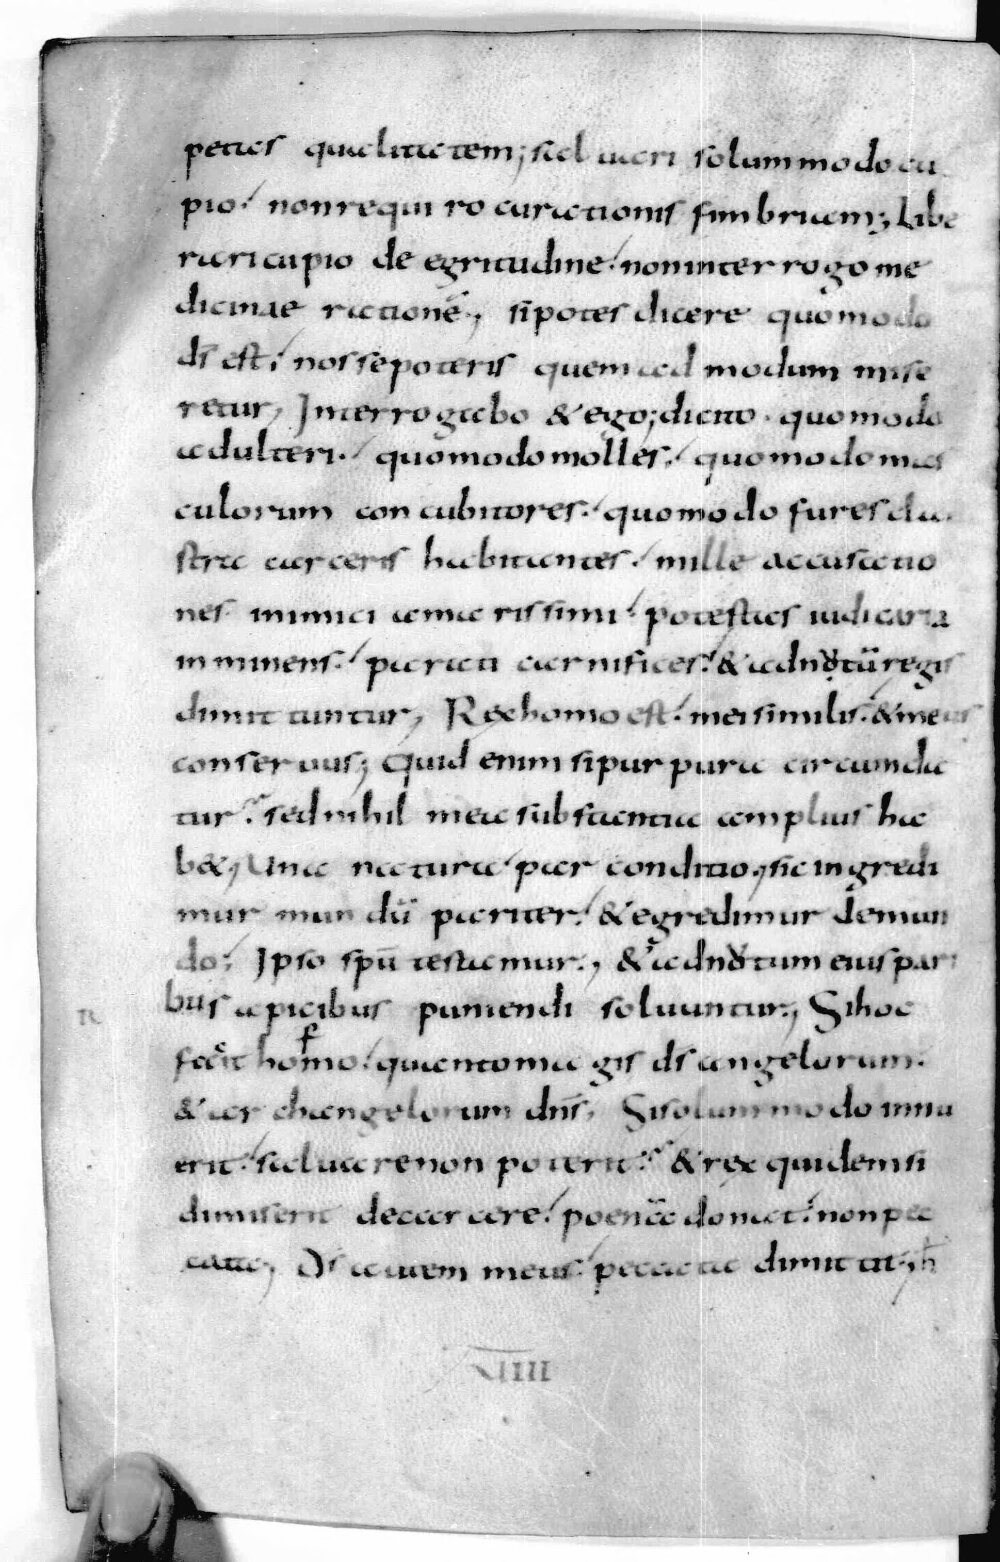 petas qualitatem; saluari solummodo cu
pio; non requiro curationis fimbriam; Libe
rari cupio de egritudine; non interrogo me
dicinae rationē; si potes dicere quomodo
ds̄ est; nosse poteris quemadmodum mise
retur; Interrogabo & ego; dicito quomodo
adulteri; quomodo molles; quomodo mas
culorum concubitores; quomodo fures clau
stra carceris habitantes; mille accusatio
nes inimici amarissimi; potestas iudicaria
inminens; parati carnifices; & ad nutū regis
dimittuntur; Rex homo est; mei similis; & meus
conseruus; Quid enim si purpura circumda
tur; sed nihil mea substantia amplius ha
b&; Una natura par conditio; sic ingredi
mur mundū pariter; & egredimur de mun
do; Ipso spū testamur; & ad nutum eius pari
bus apicibus puniendi soluuntur; Si hoc
fecit homo; quanto magis ds̄ angelorum
& archangelorum dn̄s; Si solummodo innu
erit; saluare non poterit; & rex quidem si
dimiserit de carcere; poenā donat; non pec
cata; Ds̄ autem meus peccata dimittit;
XIIII